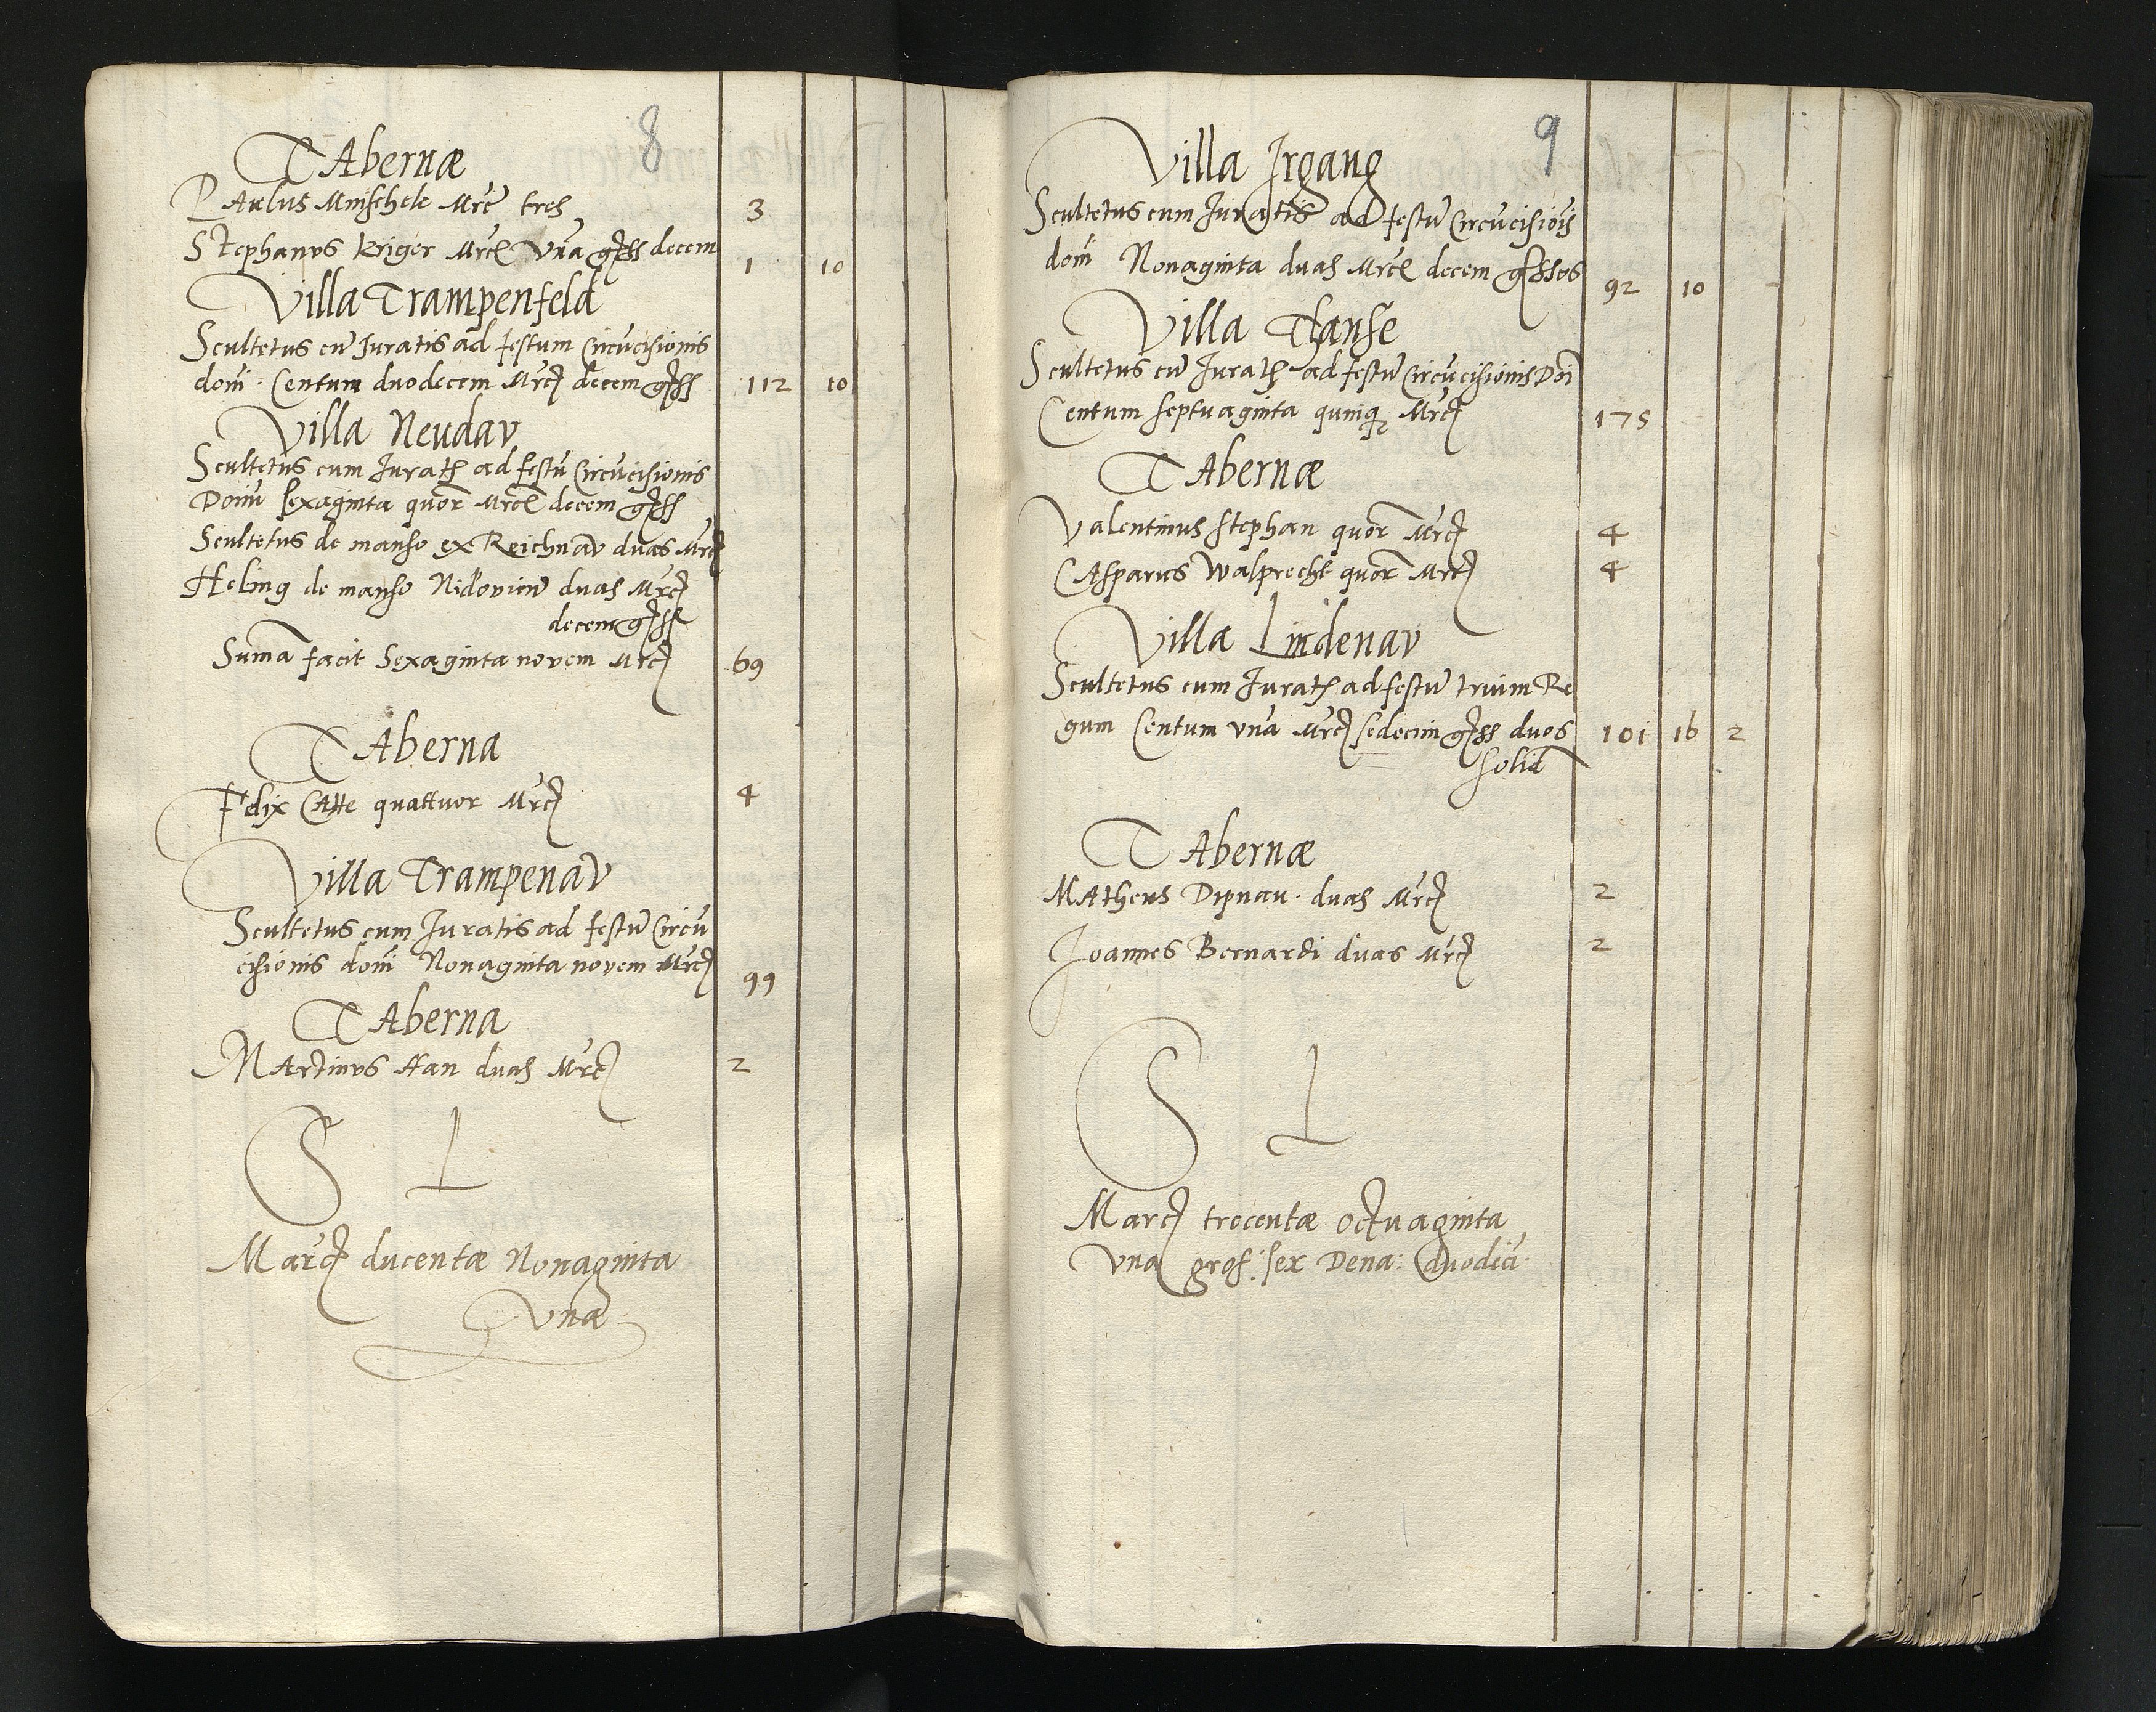 8
TAbernæ
PAulus Mnischele Mrc tres 3
Stephanus Kriger Mrc Vna gss decem 1 10
Villa Trampenfeld
Scultetus cu Juratis ad festum Circucisionis
domi. Centum duodecem Mrc decem gss 112 10
Villa Neudav
Scultetus cum Jurat ad festu Circucisionis
Domi sexaginta quor Mrc decem gss
Scultetus de manso ex Reichnav duas Mrc
Heling de manso duas Mrc
decem gss
Suma facit Sexaginta novem Mrc 69
TAberna
Felix CAtte quattuor Mrc 4
Villa Trampenav
Scultetus cum Juratis ad festu Circu
cisionis domi Nonaginta novem Mrc 99
TAberna
MArtinvs Han duas Mrc 2
S L
Marc ducentæ Nonaginta
Vnæ
9
Villa Irgang
Scultetus cum Juratis ad festu Circucisiois
domi Nonaginta duas Mrc decem gssos 92 10
Villa Thanse
Scultetus cu Jurat ad festu Circucisionis Doi
Centum septuaginta quinq Mrc 175
TAbernæ
Valentinus Stephan quor Mrc 4
CAsparus Walprecht quor Mrc 4
Villa Lindenav
Scultetus cum Jurat ad festu trium Re
gum Centum vna Mrc sedecim gss duos 101 16 2
solid
TAbernæ
MAtheus Dipnau. duas Mrc 2
Joannes Bernardi duas Mrc 2
S L
Marc trecentæ octuaginta
vna gros: sex Dena: duodeci